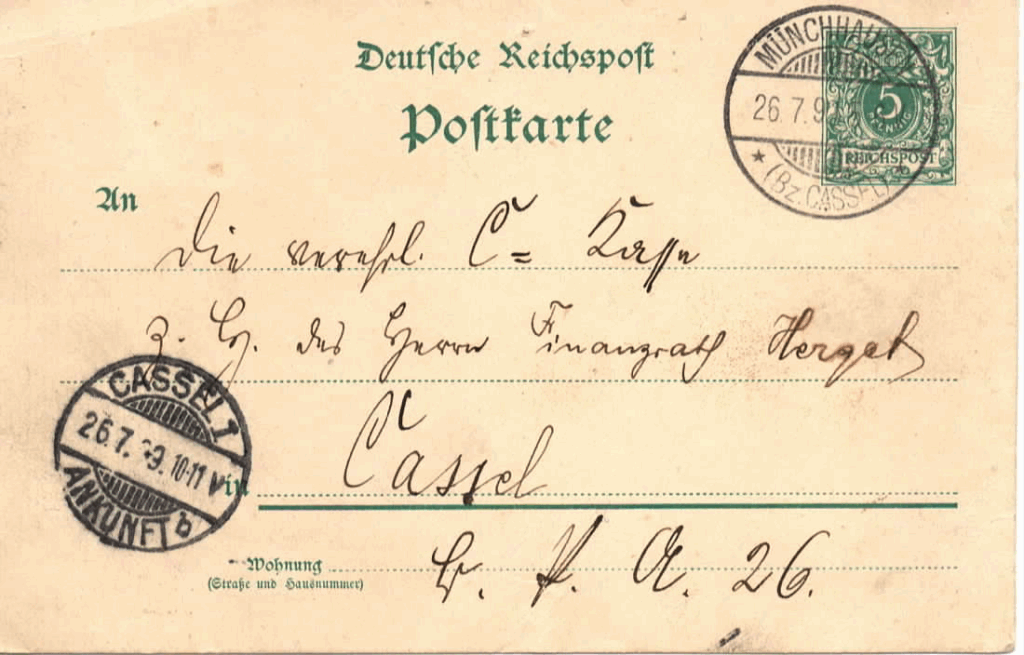 Deutsche Reichspost
Postkarte
MÜNCHHAUSEN
26.7.9
* (BZ. CASSEL) *
5
PFENNIG
REICHSPOST
An
Die verehrl. C= Kasse
z. H. des Herrn Finanzrath Herget
CASSEL 1
26.7.99. 10-11 V
ANKUNFT b
in Cassel
Wohnung
(Straße und Hausnummer)
A. 26.